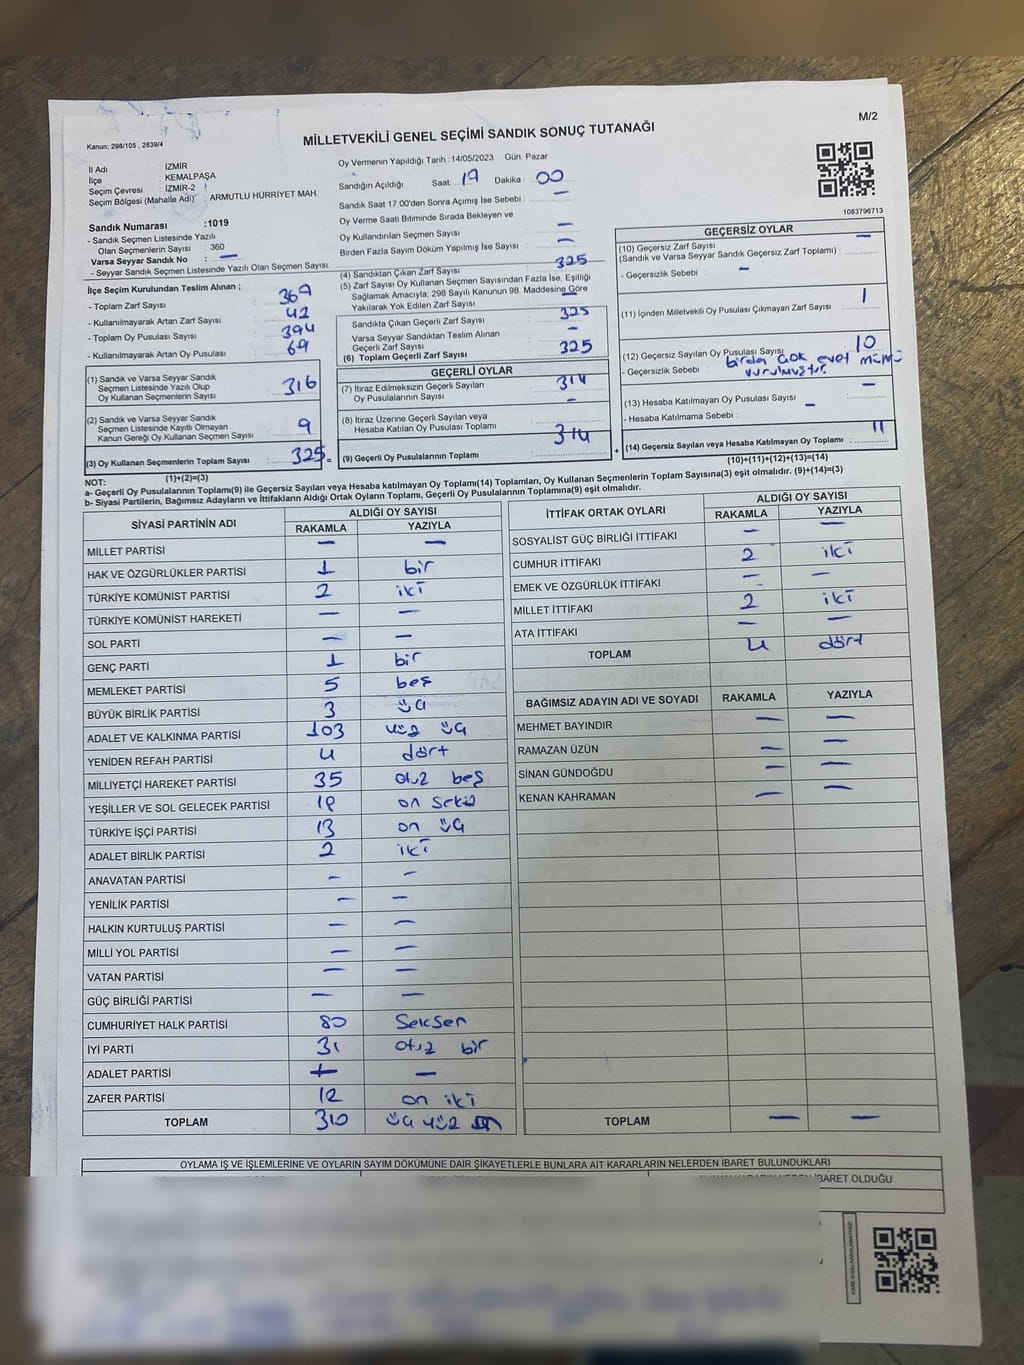 M/2
Kanun; 298/105 , 2839/4
MİLLETVEKİLİ GENEL SEÇİMİ SANDIK SONUÇ TUTANAĞI
İl Adı : İZMİR
İlçe : KEMALPAŞA
Seçim Çevresi : İZMİR-2
Seçim Bölgesi (Mahalle Adı) : ARMUTLU HÜRRİYET MAH.
Sandık Numarası :1019
- Sandık Seçmen Listesinde Yazılı
Olan Seçmenlerin Sayısı : 360
Varsa Seyyar Sandık No : —
- Seyyar Sandık Seçmen Listesinde Yazılı Olan Seçmen Sayısı
Oy Vermenin Yapıldığı Tarih : 14/05/2023 Gün: Pazar
Sandığın Açıldığı Saat: 19 Dakika : 00
Sandık Saat 17 00'den Sonra Açımış İse Sebebi : —
Oy Verme Saati Bitiminde Sırada Bekleyen ve
Oy Kullandırılan Seçmen Sayısı —
Birden Fazla Sayım Döküm Yapılmış İse Sayısı —
1083796713
İlçe Seçim Kurulundan Teslim Alınan ;
- Toplam Zarf Sayısı : 369
- Kullanılmayarak Artan Zarf Sayısı : 42
- Toplam Oy Pusulası Sayısı : 394
- Kullanılmayarak Artan Oy Pusulası : 69
(1) Sandık ve Varsa Seyyar Sandık
Seçmen Listesinde Yazılı Olup
Oy Kullanan Seçmenlerin Sayısı : 316
(2) Sandık ve Varsa Seyyar Sandık
Seçmen Listesinde Kayıtlı Olmayan
Kanun Gereği Oy Kullanan Seçmen Sayısı : 9
(3) Oy Kullanan Seçmenlerin Toplam Sayısı : 325 =
(1)+(2)=(3)
(4) Sandıktan Çıkan Zarf Sayısı 325
(5) Zarf Sayısı Oy Kullanan Seçmen Sayısından Fazla İse, Eşitliği
Sağlamak Amacıyla, 298 Sayılı Kanunun 98. Maddesine Göre
Yakılarak Yok Edilen Zarf Sayısı : —
Sandıkta Çıkan Geçerli Zarf Sayısı : 325
Varsa Seyyar Sandıktan Teslim Alınan
Geçerli Zarf Sayısı —
(6) Toplam Geçerli Zarf Sayısı : 325
GEÇERLİ OYLAR
(7) İtiraz Edilmeksizin Geçerli Sayılan
Oy Pusulalarının Sayısı : 314
(8) İtiraz Üzerine Geçerli Sayılan veya
Hesaba Katılan Oy Pusulası Toplamı : —
(9) Geçerli Oy Pusulalarının Toplamı : 314 +
GEÇERSİZ OYLAR
(10) Geçersiz Zarf Sayısı —
(Sandık ve Varsa Seyyar Sandık Geçersiz Zarf Toplamı) :
- Geçersizlik Sebebi : —
(11) İçinden Milletvekili Oy Pusulası Çıkmayan Zarf Sayısı : 1
(12) Geçersiz Sayılan Oy Pusulası Sayısı : 10
- Geçersizlik Sebebi : birden çok evet mührü
vurulmuştur.
(13) Hesaba Katılmayan Oy Pusulası Sayısı : —
- Hesaba Katılmama Sebebi : —
(14) Geçersiz Sayılan veya Hesaba Katılmayan Oy Toplamı : 11
(10)+(11)+(12)+(13)=(14)
NOT:
a- Geçerli Oy Pusulalarının Toplamı(9) ile Geçersiz Sayılan veya Hesaba katılmayan Oy Toplamı(14) Toplamları, Oy Kullanan Seçmenlerin Toplam Sayısına(3) eşit olmalıdır. (9)+(14)=(3)
b- Siyasi Partilerin, Bağımsız Adayların ve İttifakların Aldığı Ortak Oyların Toplamı, Geçerli Oy Pusulalarının Toplamına(9) eşit olmalıdır.
SİYASİ PARTİNİN ADI ALDIĞI OY SAYISI
RAKAMLA YAZIYLA
MİLLET PARTİSİ — —
HAK VE ÖZGÜRLÜKLER PARTİSİ 1 bir
TÜRKİYE KOMÜNİST PARTİSİ 2 iki
TÜRKİYE KOMÜNİST HAREKETİ — —
SOL PARTİ — —
GENÇ PARTİ 1 bir
MEMLEKET PARTİSİ 5 beş
BÜYÜK BİRLİK PARTİSİ 3 üç
ADALET VE KALKINMA PARTİSİ 103 yüz üç
YENİDEN REFAH PARTİSİ 4 dört
MİLLİYETÇİ HAREKET PARTİSİ 35 otuz beş
YEŞİLLER VE SOL GELECEK PARTİSİ 18 on sekiz
TÜRKİYE İŞÇİ PARTİSİ 13 on üç
ADALET BİRLİK PARTİSİ 2 iki
ANAVATAN PARTİSİ — —
YENİLİK PARTİSİ — —
HALKIN KURTULUŞ PARTİSİ — —
MİLLİ YOL PARTİSİ — —
VATAN PARTİSİ — —
GÜÇ BİRLİĞİ PARTİSİ — —
CUMHURİYET HALK PARTİSİ 80 Seksen
İYİ PARTİ 31 otuz bir
ADALET PARTİSİ — —
ZAFER PARTİSİ 12 on iki
TOPLAM 310 üç yüz on
İTTİFAK ORTAK OYLARI ALDIĞI OY SAYISI
RAKAMLA YAZIYLA
SOSYALİST GÜÇ BİRLİĞİ İTTİFAKI — —
CUMHUR İTTİFAKI 2 iki
EMEK VE ÖZGÜRLÜK İTTİFAKI — —
MİLLET İTTİFAKI 2 iki
ATA İTTİFAKI — —
TOPLAM 4 dört
BAĞIMSIZ ADAYIN ADI VE SOYADI RAKAMLA YAZIYLA
MEHMET BAYINDIR — —
RAMAZAN ÜZÜN — —
SİNAN GÜNDOĞDU — —
KENAN KAHRAMAN — —
TOPLAM — —
OYLAMA İŞ VE İŞLEMLERİNE VE OYLARIN SAYIM DÖKÜMÜNE DAİR ŞİKAYETLERLE BUNLARA AİT KARARLARIN NELERDEN İBARET BULUNDUKLARI
İBARET OLDUĞU